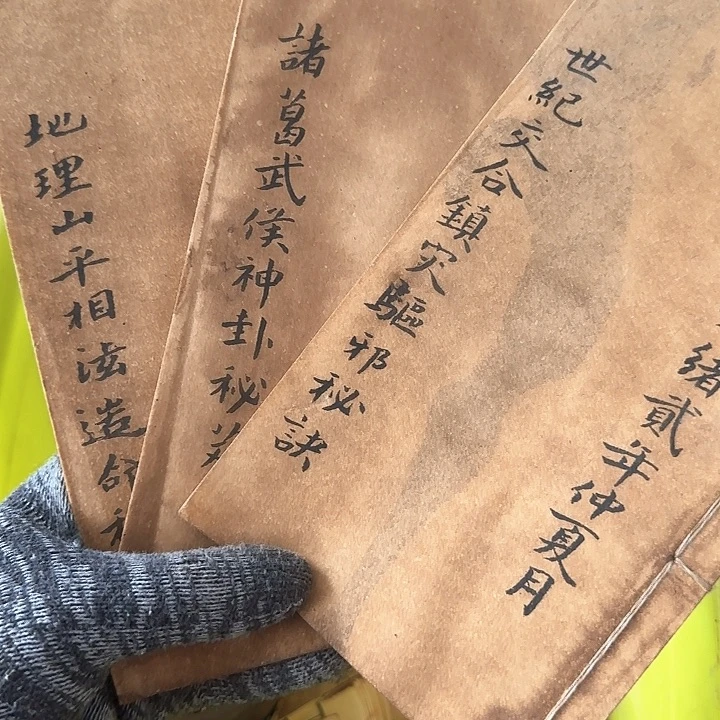 緒貳年仲夏月
世紀交合鎮灾驅邪秘訣
諸葛武侯神卦秘
地理山平相滋造命